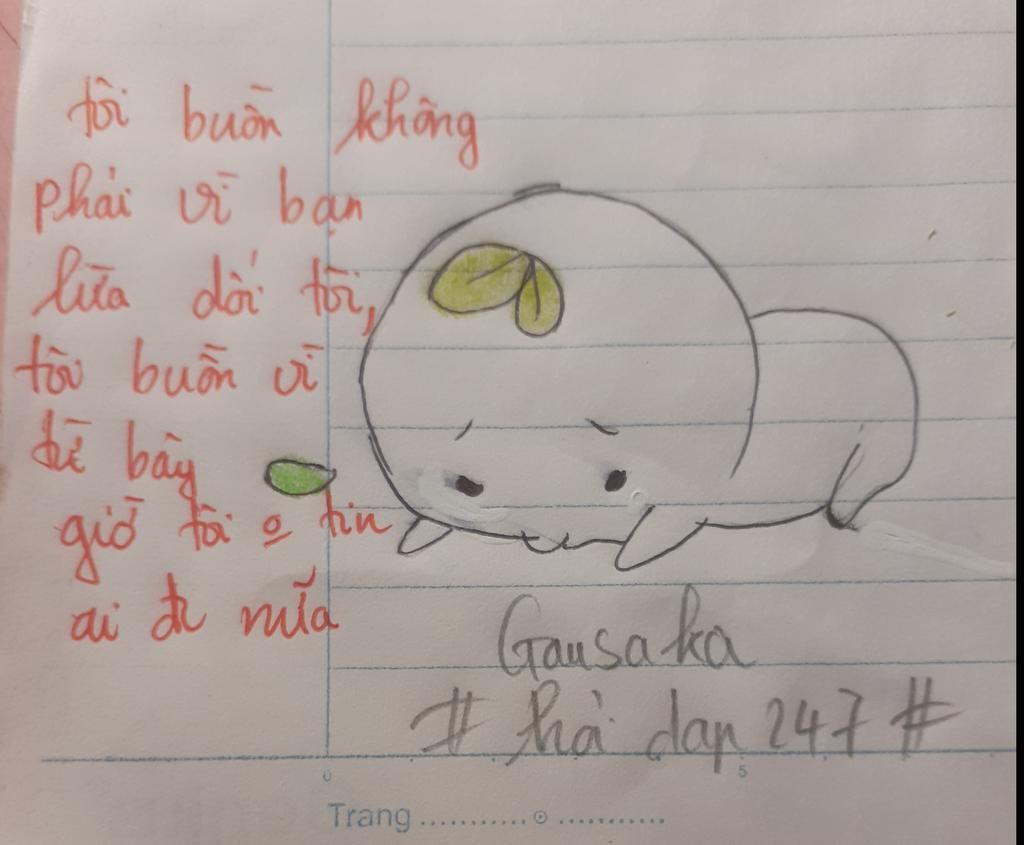 tôi buồn không
phải vì bạn
lừa dối tôi,
tôi buồn vì
từ bây
giờ tôi o tin
ai đc nữa
Gausaka
# thả dan 247 #
0 5
Trang